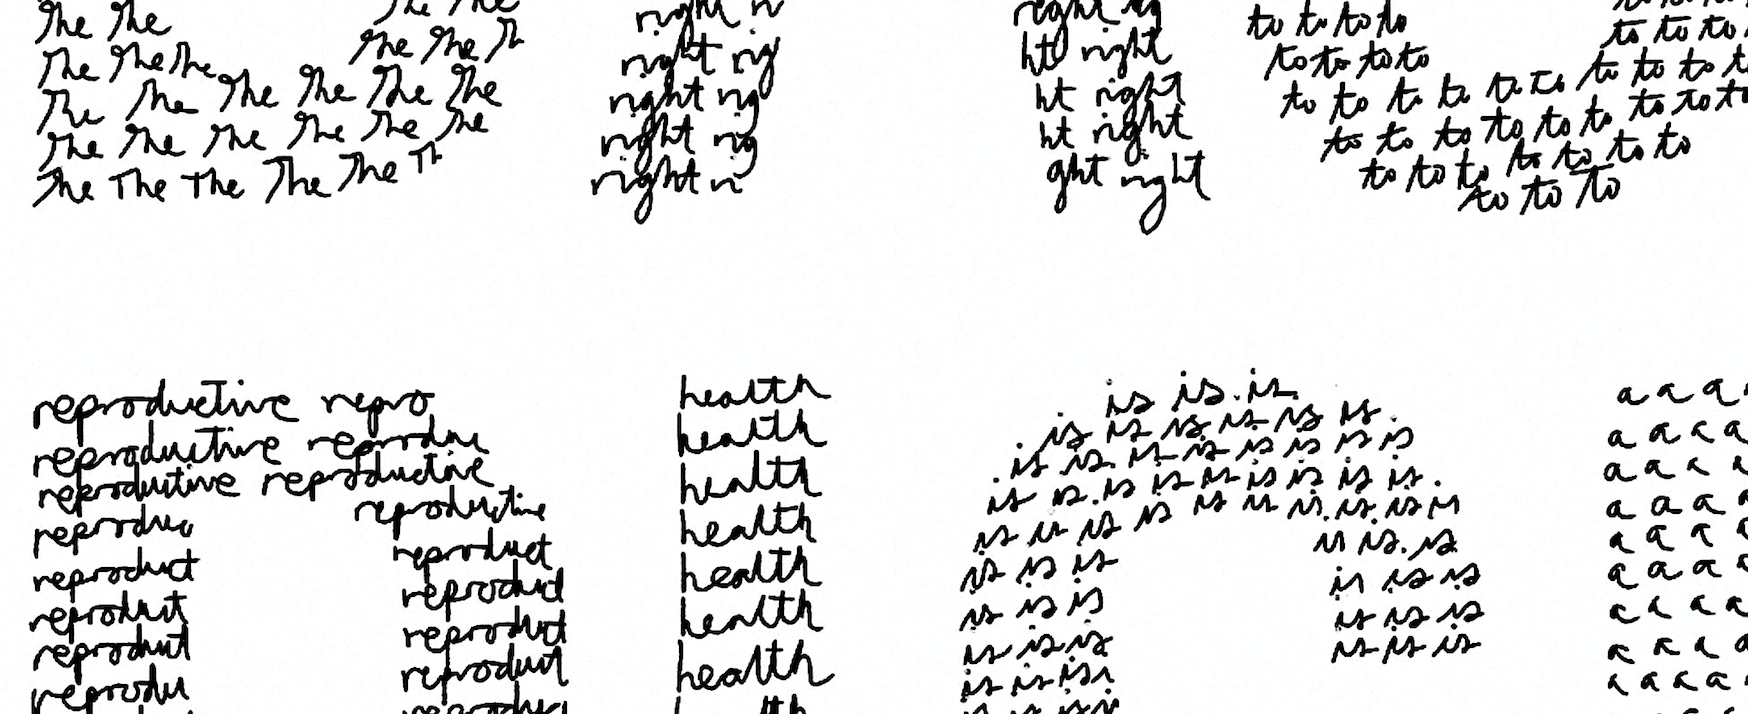 The The The The
The The The The The Th
The The The The The The
The The The The The The
The The The The The Th
right ri
right rig
right rig
right rig
right ri
right rig
ht right
ht right
ht right
ght right
to to to to to to to
to to to to to to to t
to to to to to to to to to
to to to to to to to
to to to to to to to to
to to to
reproductive repro
reproductive reproduc
reproductive reproductive
reproduc reproductive
reproduct reproduct
reproduct reproduct
reproduct reproduct
reprodu reproduct
health
health
health
health
health
health
health
is is is
is is is is is
is is is is is is is
is is is is is is is is
is is is is is is is is is
is is is is is is
is is is is is is
is is is is is is
is is is is is is
is is is
a a a
a a a a
a a a a
a a a a
a a a a
a a a a
a a a a
a a a a
a a a a